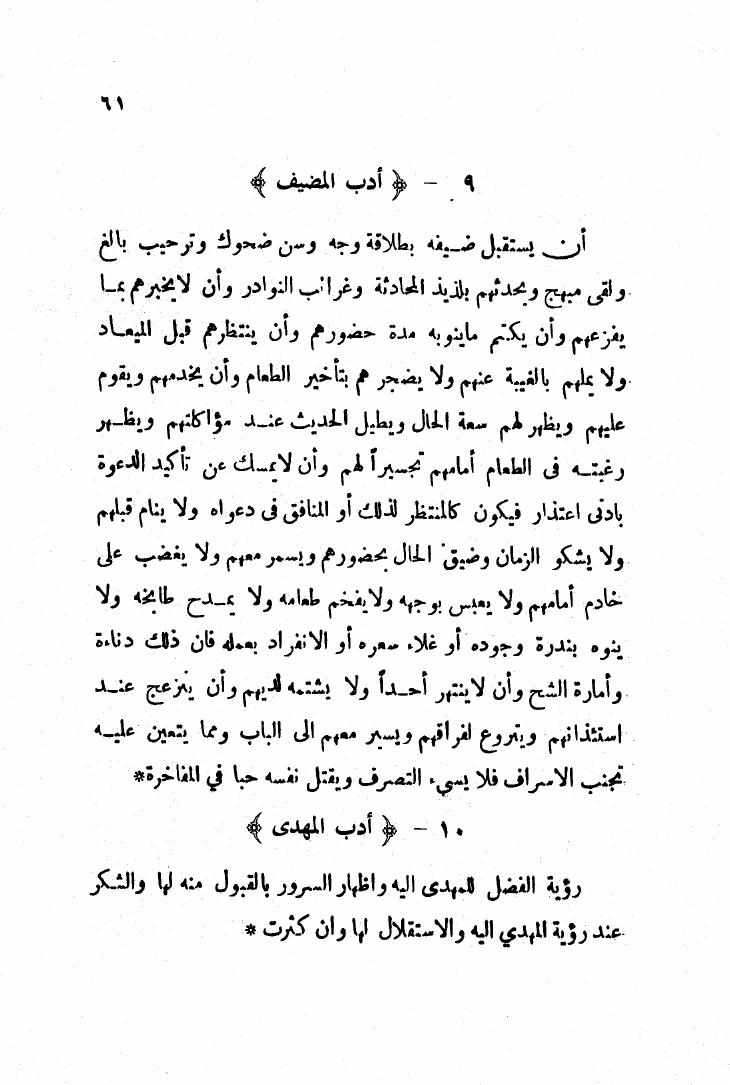 ٦١
٩ – ﴿ أدب المضيف ﴾
أن يستقبل ضيفه بطلاقة وجه وسن ضحوك وترحيب بالغ
ولقى مبهج ويحدثهم بلذيذ المحادثة وغرائب النوادر وأن لايخبرهم بما
يفزعهم وأن يكتم ماينوبه مدة حضورهم وأن ينتظرهم قبل الميعاد
ولا يملهم بالغيبة عنهم ولا يضجرهم بتأخير الطعام وأن يخدمهم ويقوم
عليهم ويظهر لهم سعة الحال ويطيل الحديث عند مؤاكلتهم ويظهر
رغبته فى الطعام أمامهم تجسيراً لهم وأن لايمسك عن تأكيد الدعوة
بادنى اعتذار فيكون كالمنتظر لذلك أو المنافق فى دعواه ولا ينام قبلهم
ولا يشكو الزمان وضيق الحال بحضورهم ويسمر معهم ولا يغضب على
خادم أمامهم ولا يعبس بوجهه ولايفخم طعامه ولا يمدح طابخه ولا
ينوه بندرة وجوده أو غلاء سعره أو الانفراد بعمله فان ذلك دناءة
وأمارة الشح وأن لاينتهر أحداً ولا يشتمه لديهم وأن ينزعج عند
استئذانهم ويتروع لفراقهم ويسير معهم الى الباب ومما يتعين عليه
تجنب الاسراف فلا يسيء التصرف ويقتل نفسه حبا في المفاخرة*
١٠ – ﴿ أدب المهدى ﴾
رؤية الفضل للمهدى اليه واظهار السرور بالقبول منه لها والشكر
عند رؤية المهدي اليه والاستقلال لها وان كثرت *